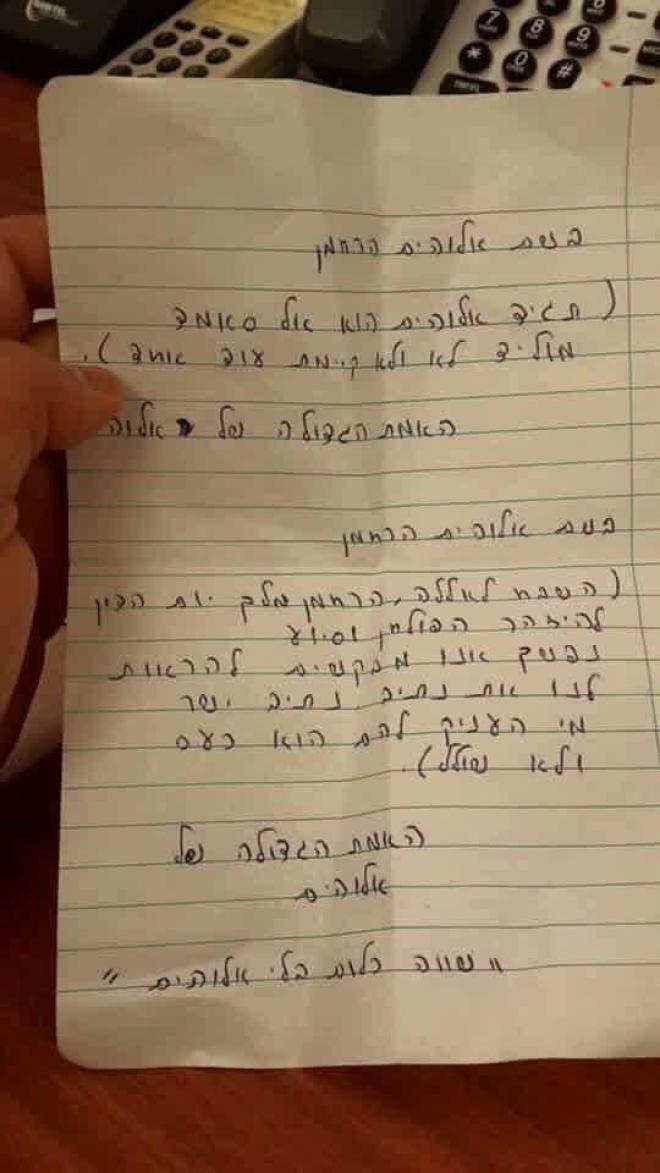 בשם אלוהים הרחמן
( תגיד אלוהים הוא אל סאמד
מוליד לא ולא קיימת עוד אחד ).
האמת הגדולה של אלוה
בשם אלוהים הרחמן
( השבח לאללה, הרחמן מלך יום הדין
להיזהר הפולחן וסיוע
נפשך אנו מבקשים להראות
לנו את נתיב נתיב ישר
מי העניק להם הוא כעס
ולא שולל ).
האמת הגדולה של
אלוהים
" שווה כלום בלי אלוהים "
7 8 9
* 0 #